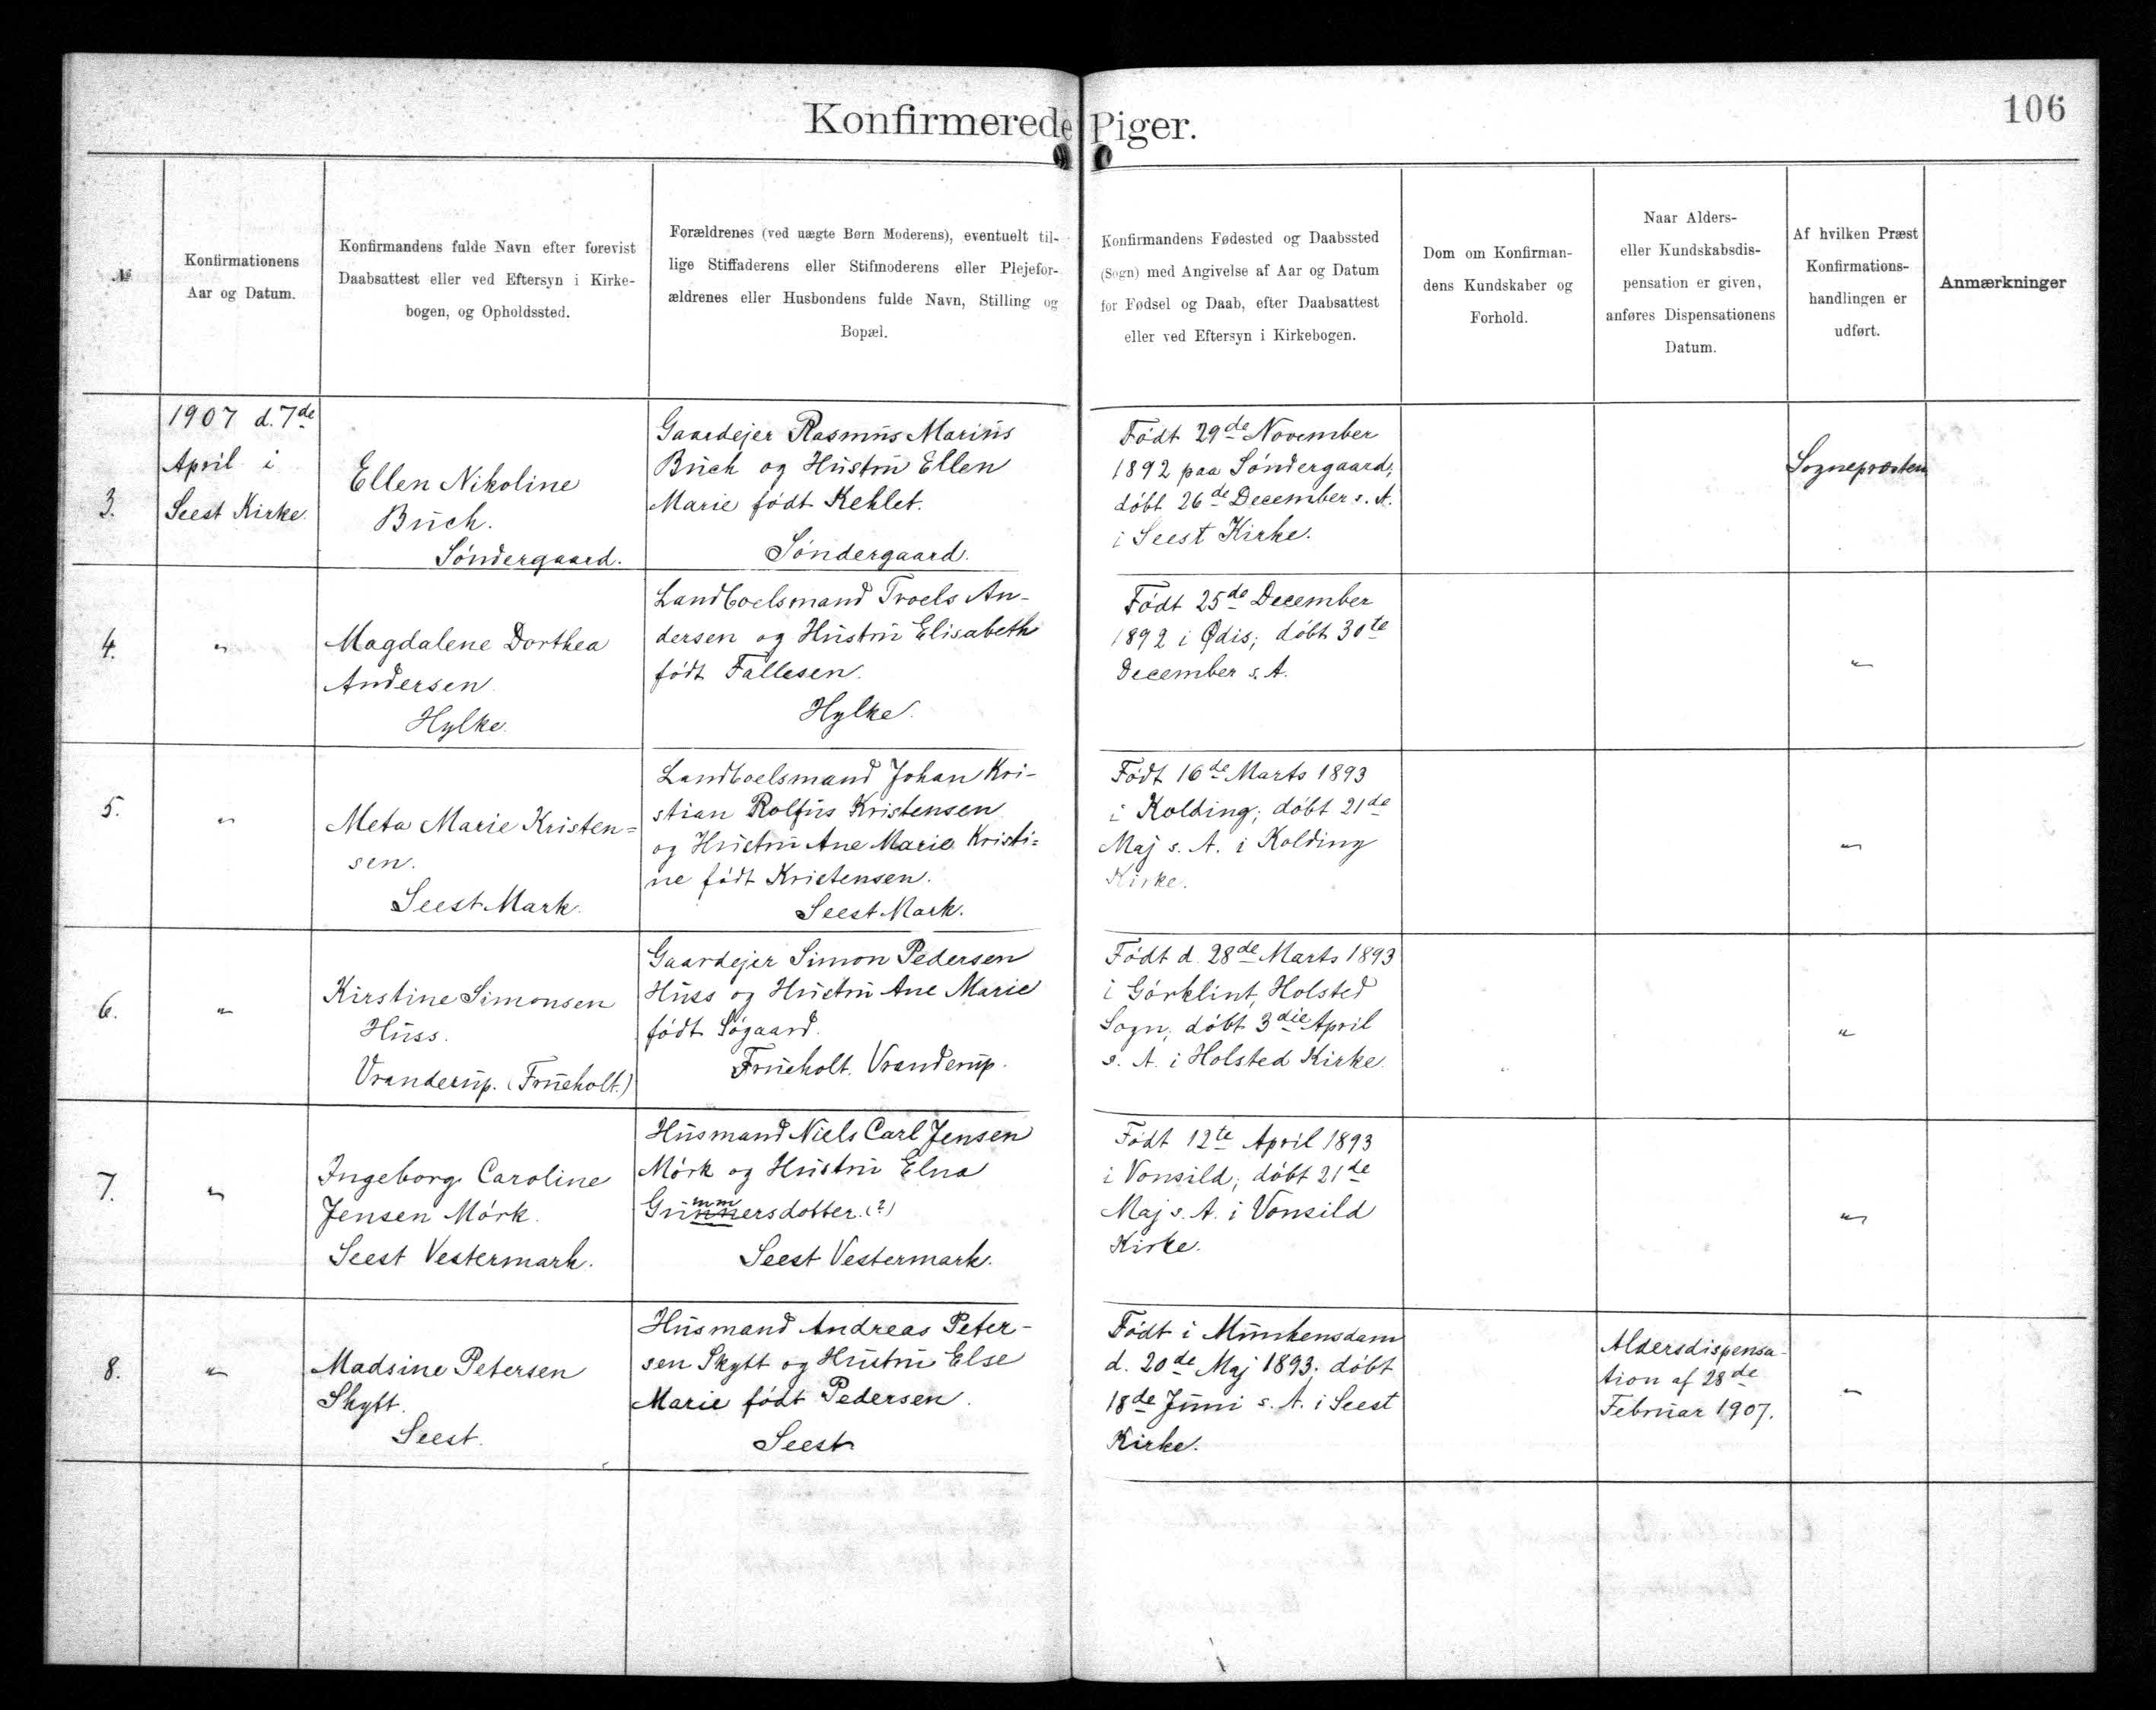 Konfirmerede Piger.
106
№
Konfirmationens
Aar og Datum.
Konfirmandens fulde Navn efter forevist
Daabsattest eller ved Eftersyn i Kirke-
bogen, og Opholdssted.
Forældrenes (ved uægte Børn Moderens), eventuelt til-
lige Stiffaderens eller Stifmoderens eller Plejefor-
ældrenes eller Husbondens fulde Navn, Stilling og
Bopæl.
Konfirmandens Fødested og Daabssted
(Sogn) med Angivelse af Aar og Datum
for Fødsel og Daab, efter Daabsattest
eller ved Eftersyn i Kirkebogen.
Dom om Konfirman-
dens Kundskaber og
Forhold.
Naar Alders-
eller Kundskabsdis-
pensation er given,
anføres Dispensationens
Datum.
Af hvilken Præst
Konfirmations-
handlingen er
udført.
Anmærkninger
3.
1907 d. 7de
April i
Seest Kirke.
Ellen Nikoline
Buch.
Søndergaard.
Gaardejer Rasmus Marius
Buch og Hustru Ellen
Marie født Kehlet.
Søndergaard.
Født 29de November
1892 paa Søndergaard;
døbt 26de December s. A.
i Seest Kirke.
Sognepræsten
4.
"
Magdalene Dorthea
Andersen
Hylke.
Landboelsmand Troels An-
dersen og Hustru Elisabeth
født Fallesen.
Hylke.
Født 25de December
1892 i Ødis; døbt 30te
December s. A.
"
5.
"
Meta Marie Kristen=
sen.
Seest Mark.
Landboelsmand Johan Kri-
stian Rolfus Kristensen
og Hustru Ane Marie Kristi=
ne født Kristensen.
Seest Mark.
Født 16de Marts 1893
i Kolding; døbt 21de
Maj s. A. i Kolding
Kirke.
"
6.
"
Kirstine Simonsen
Huss.
Vranderup. (Frueholt.)
Gaardejer Simon Pedersen
Huss og Hustru Ane Marie
født Søgaard.
Frueholt. Vranderup.
Født d. 28de Marts 1893
i Gørklint, Holsted
Sogn; døbt 3die April
s. A. i Holsted Kirke.
"
7.
"
Ingeborg Caroline
Jensen Mørk.
Seest Vestermark.
Husmand Niels Carl Jensen
Mørk og Hustru Elna
mm
Gunnersdotter. (?)
Seest Vestermark.
Født 12te April 1893
i Vonsild; døbt 21de
Maj s. A. i Vonsild
Kirke.
"
8.
"
Madsine Petersen
Skytt.
Seest.
Husmand Andreas Peter-
sen Skytt og Hustru Else
Marie født Pedersen.
Seest
Født i Munkensdam
d. 20de Maj 1893; døbt
18de Juni s. A. i Seest
Kirke.
Aldersdispensa-
tion af 28de
Februar 1907.
"